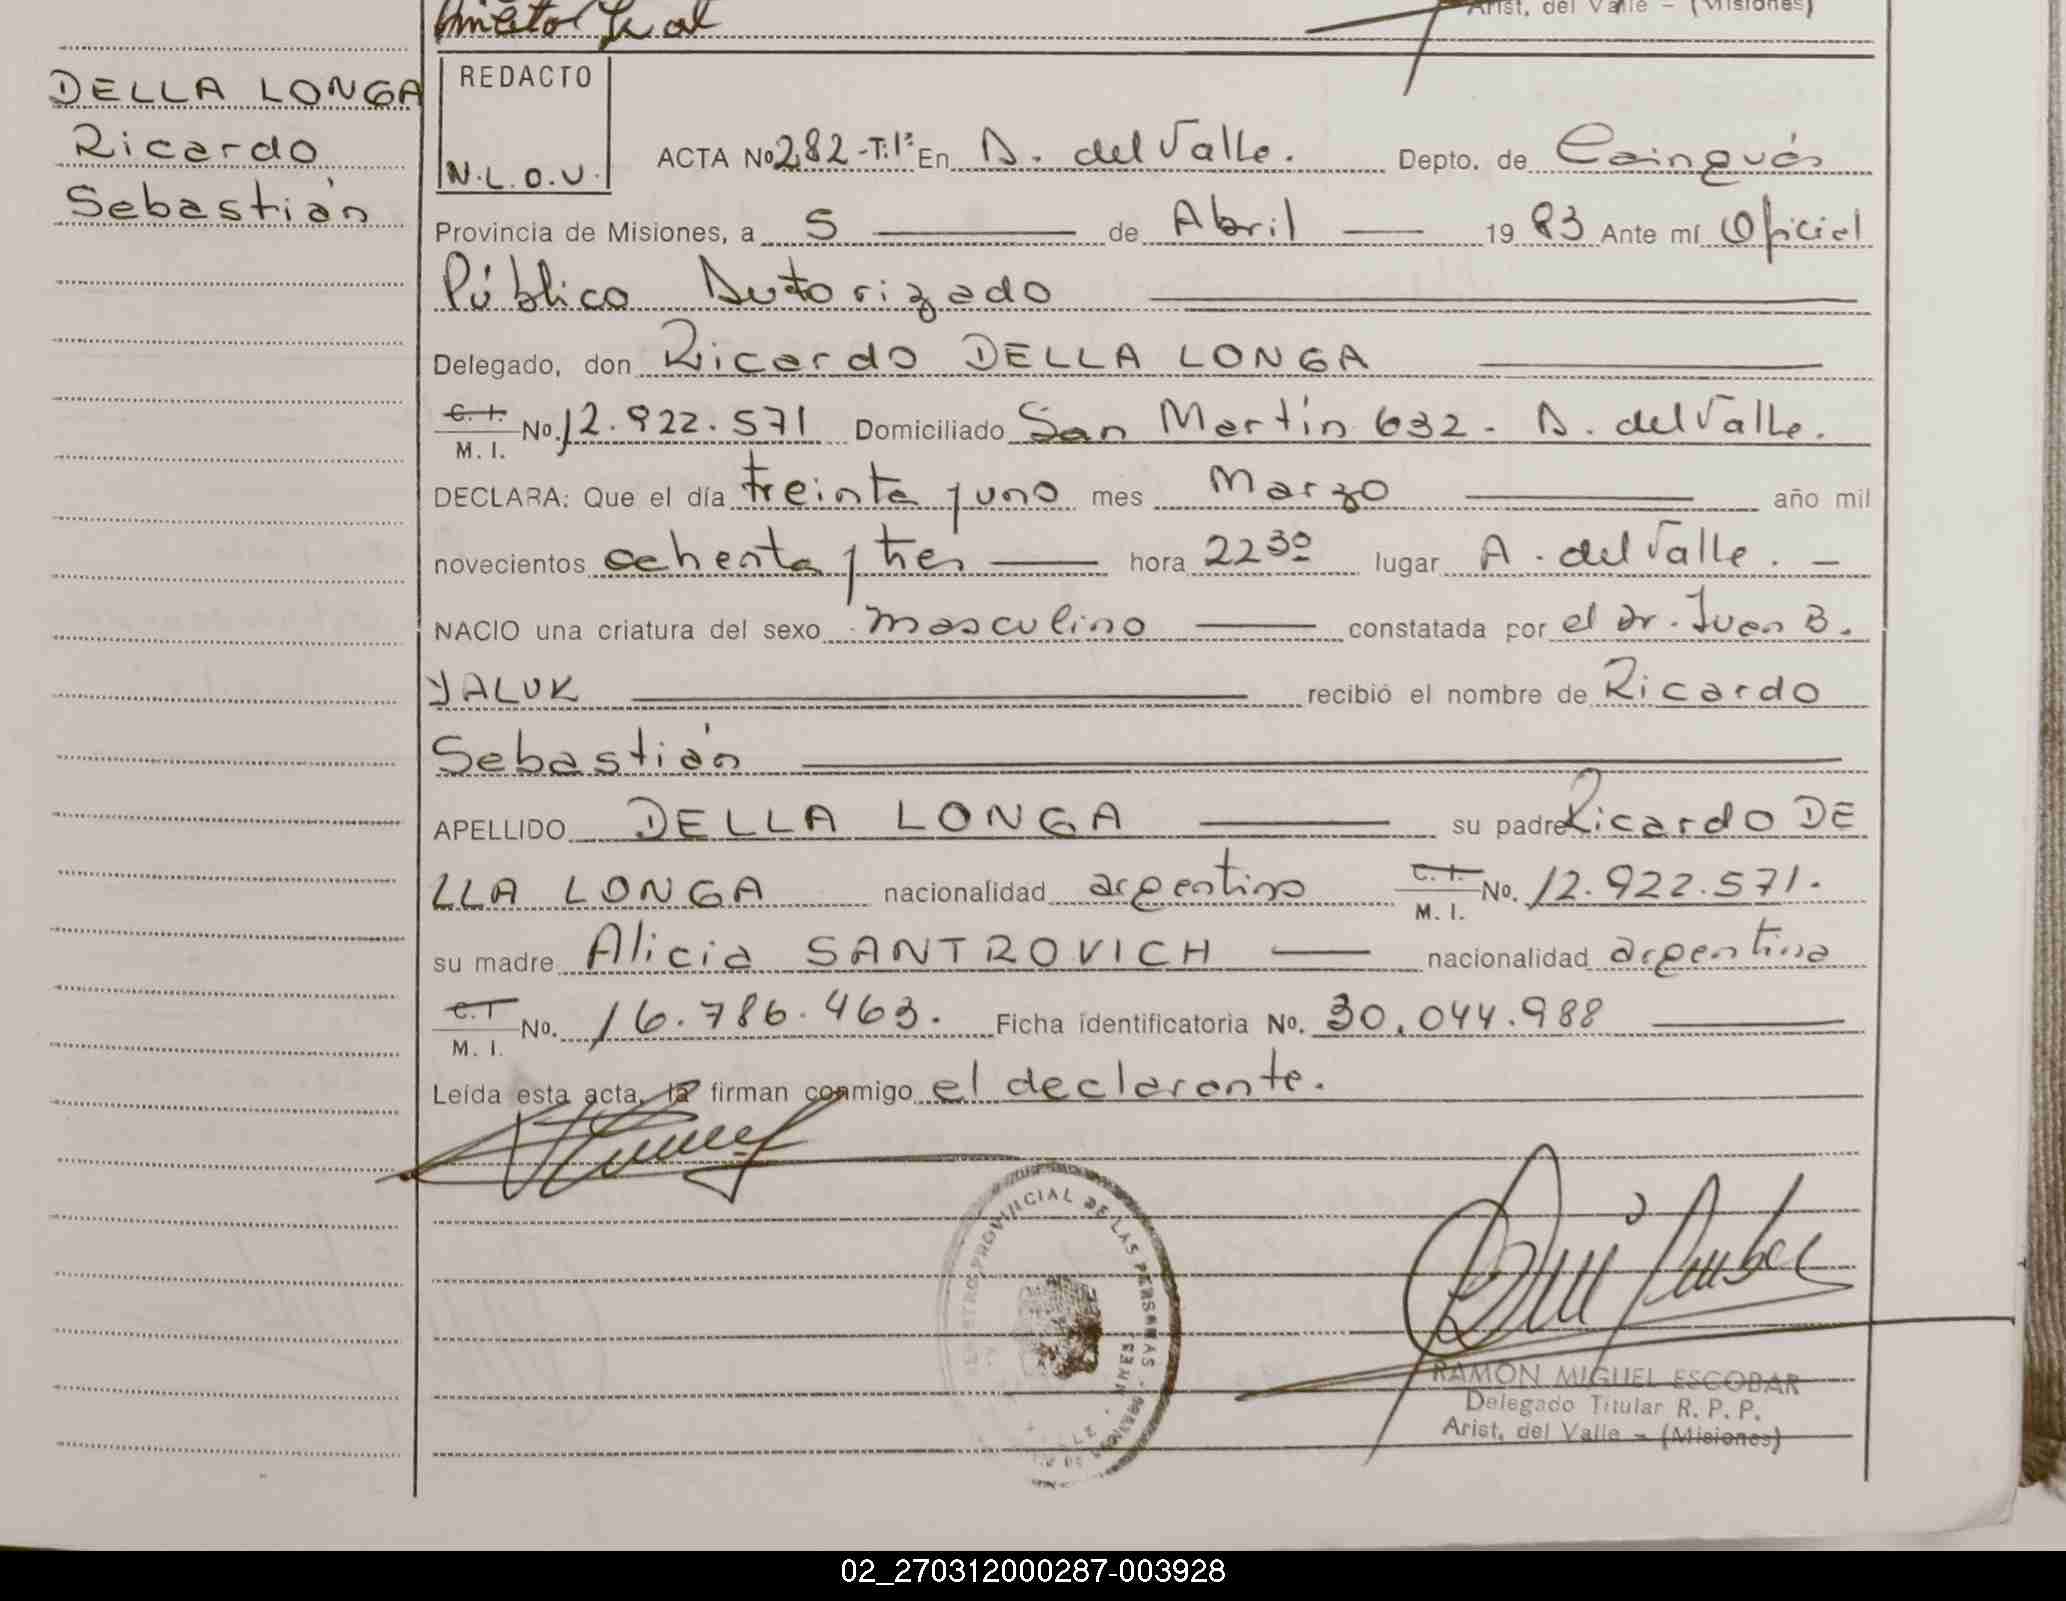 Arist. del Valle - (Misiones)
DELLA LONGA
Ricardo
Sebastián
REDACTO
N.L.O.V.
ACTA No 282-T.1º En A. del Valle. Depto. de Cainguás
Provincia de Misiones, a 5 de Abril 1983 Ante mí Oficial
Público Autorizado
Delegado, don Ricardo DELLA LONGA
C. I. M. I. No. 12.922.571 Domiciliado San Martín 632 - A. del Valle.
DECLARA: Que el día treinta y uno mes Marzo año mil
novecientos ochenta y tres hora 22³⁰ lugar A. del Valle. -
NACIO una criatura del sexo masculino constatada por el Dr. Juan B.
YALUK recibió el nombre de Ricardo
Sebastián
APELLIDO DELLA LONGA su padre Ricardo DE
LLA LONGA nacionalidad argentino C. I. M. I. No. 12.922.571.
su madre Alicia SANTROVICH nacionalidad argentina
C. I. M. I. No. 16.786.463. Ficha identificatoria No. 30.044.988
Leída esta acta, la firman conmigo el declarante.
PROVINCIAL DE LAS PERSONAS
RAMON MIGUEL ESCOBAR
Delegado Titular R. P. P.
Arist. del Valle - (Misiones)
02_270312000287-003928